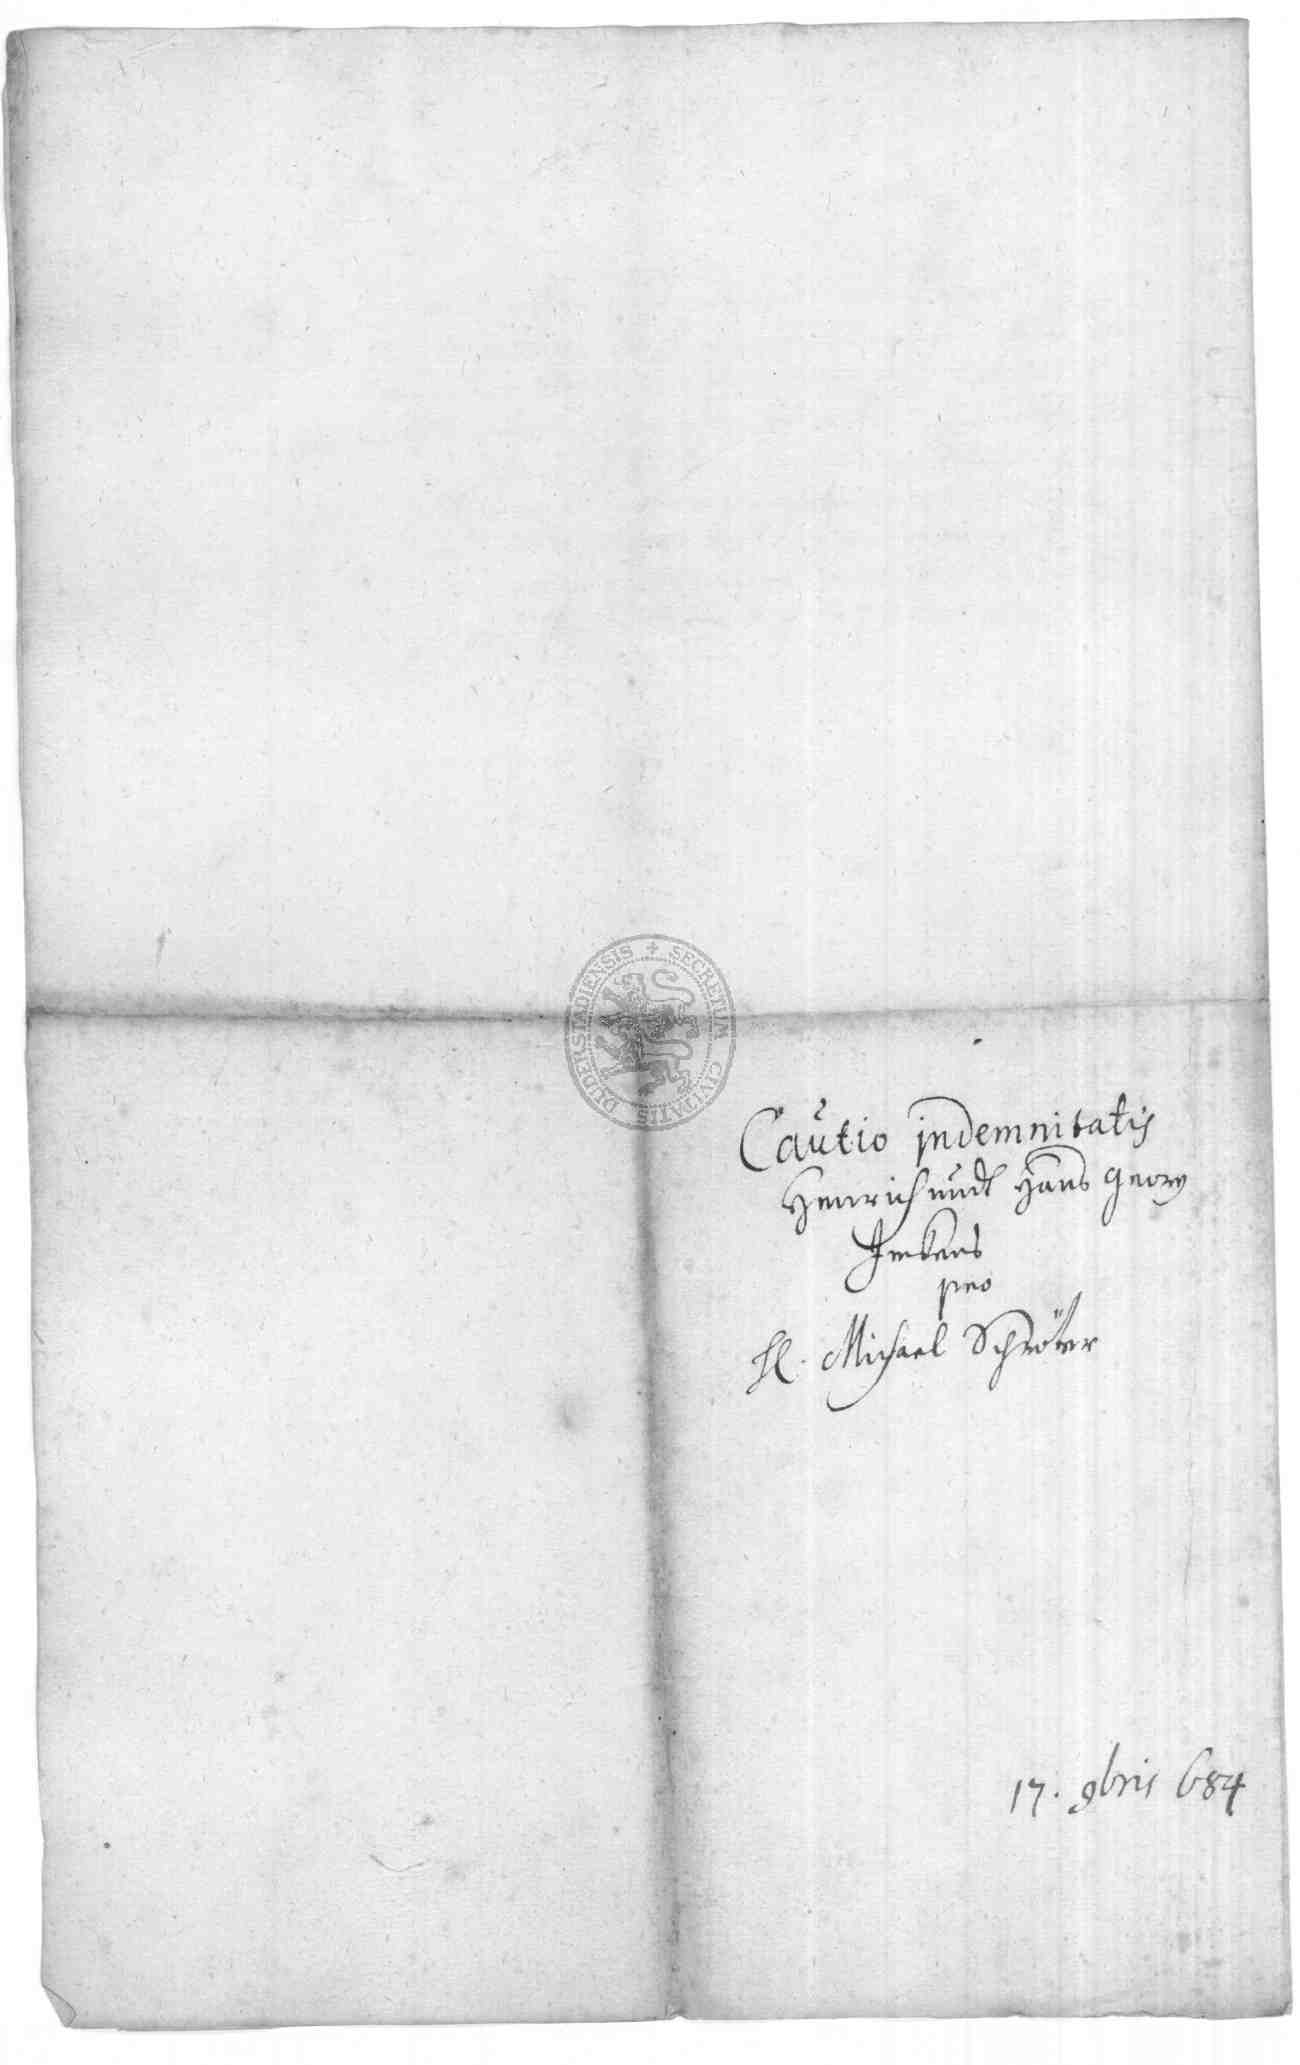 Cautio jndemnitatis
Henrich undt Hans Georg
pro
H. Michael Schröter
17. 9bris 684
SECRETUM CIVITATIS DUDERSTADIENSIS